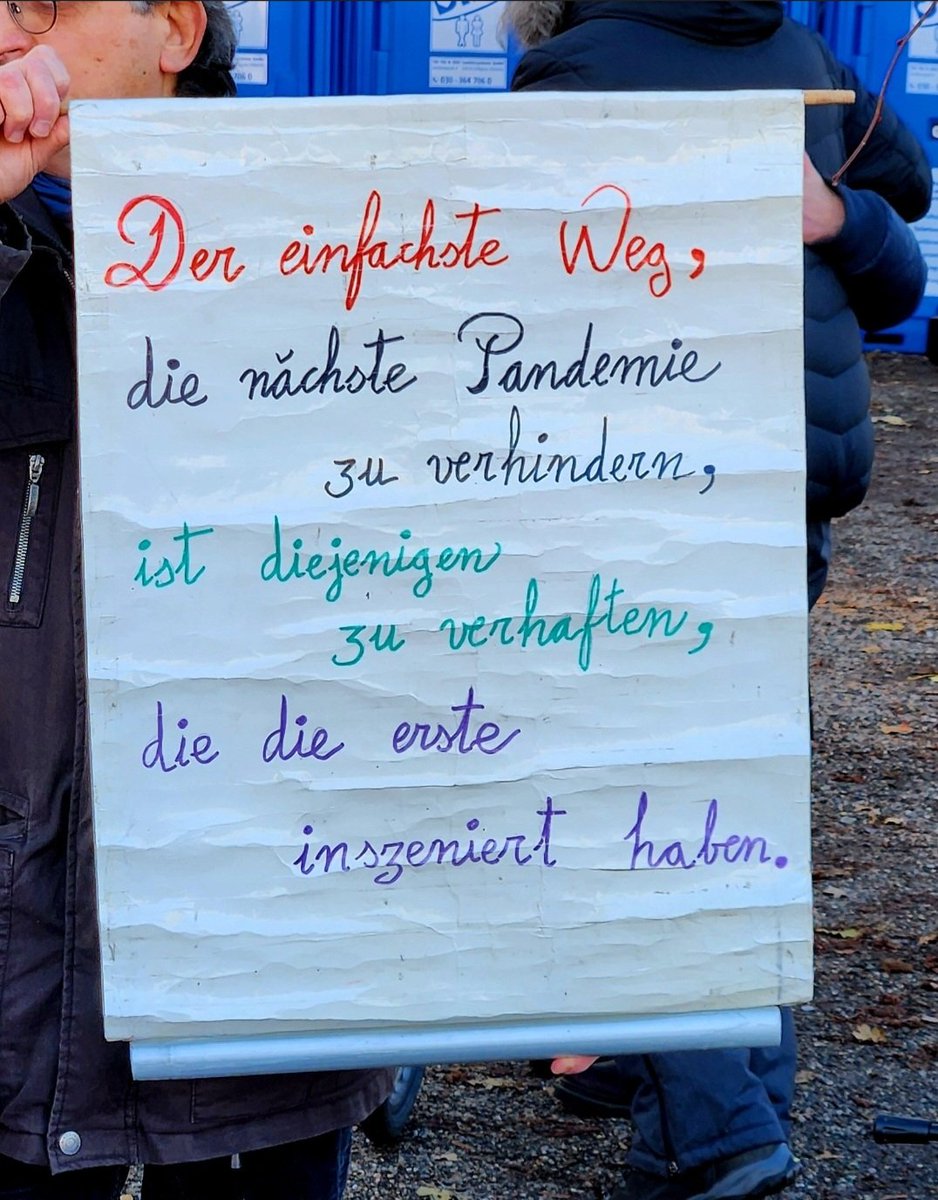 Der einfachste Weg,
die nächste Pandemie
zu verhindern,
ist diejenigen
zu verhaften,
die die erste
inszeniert haben.